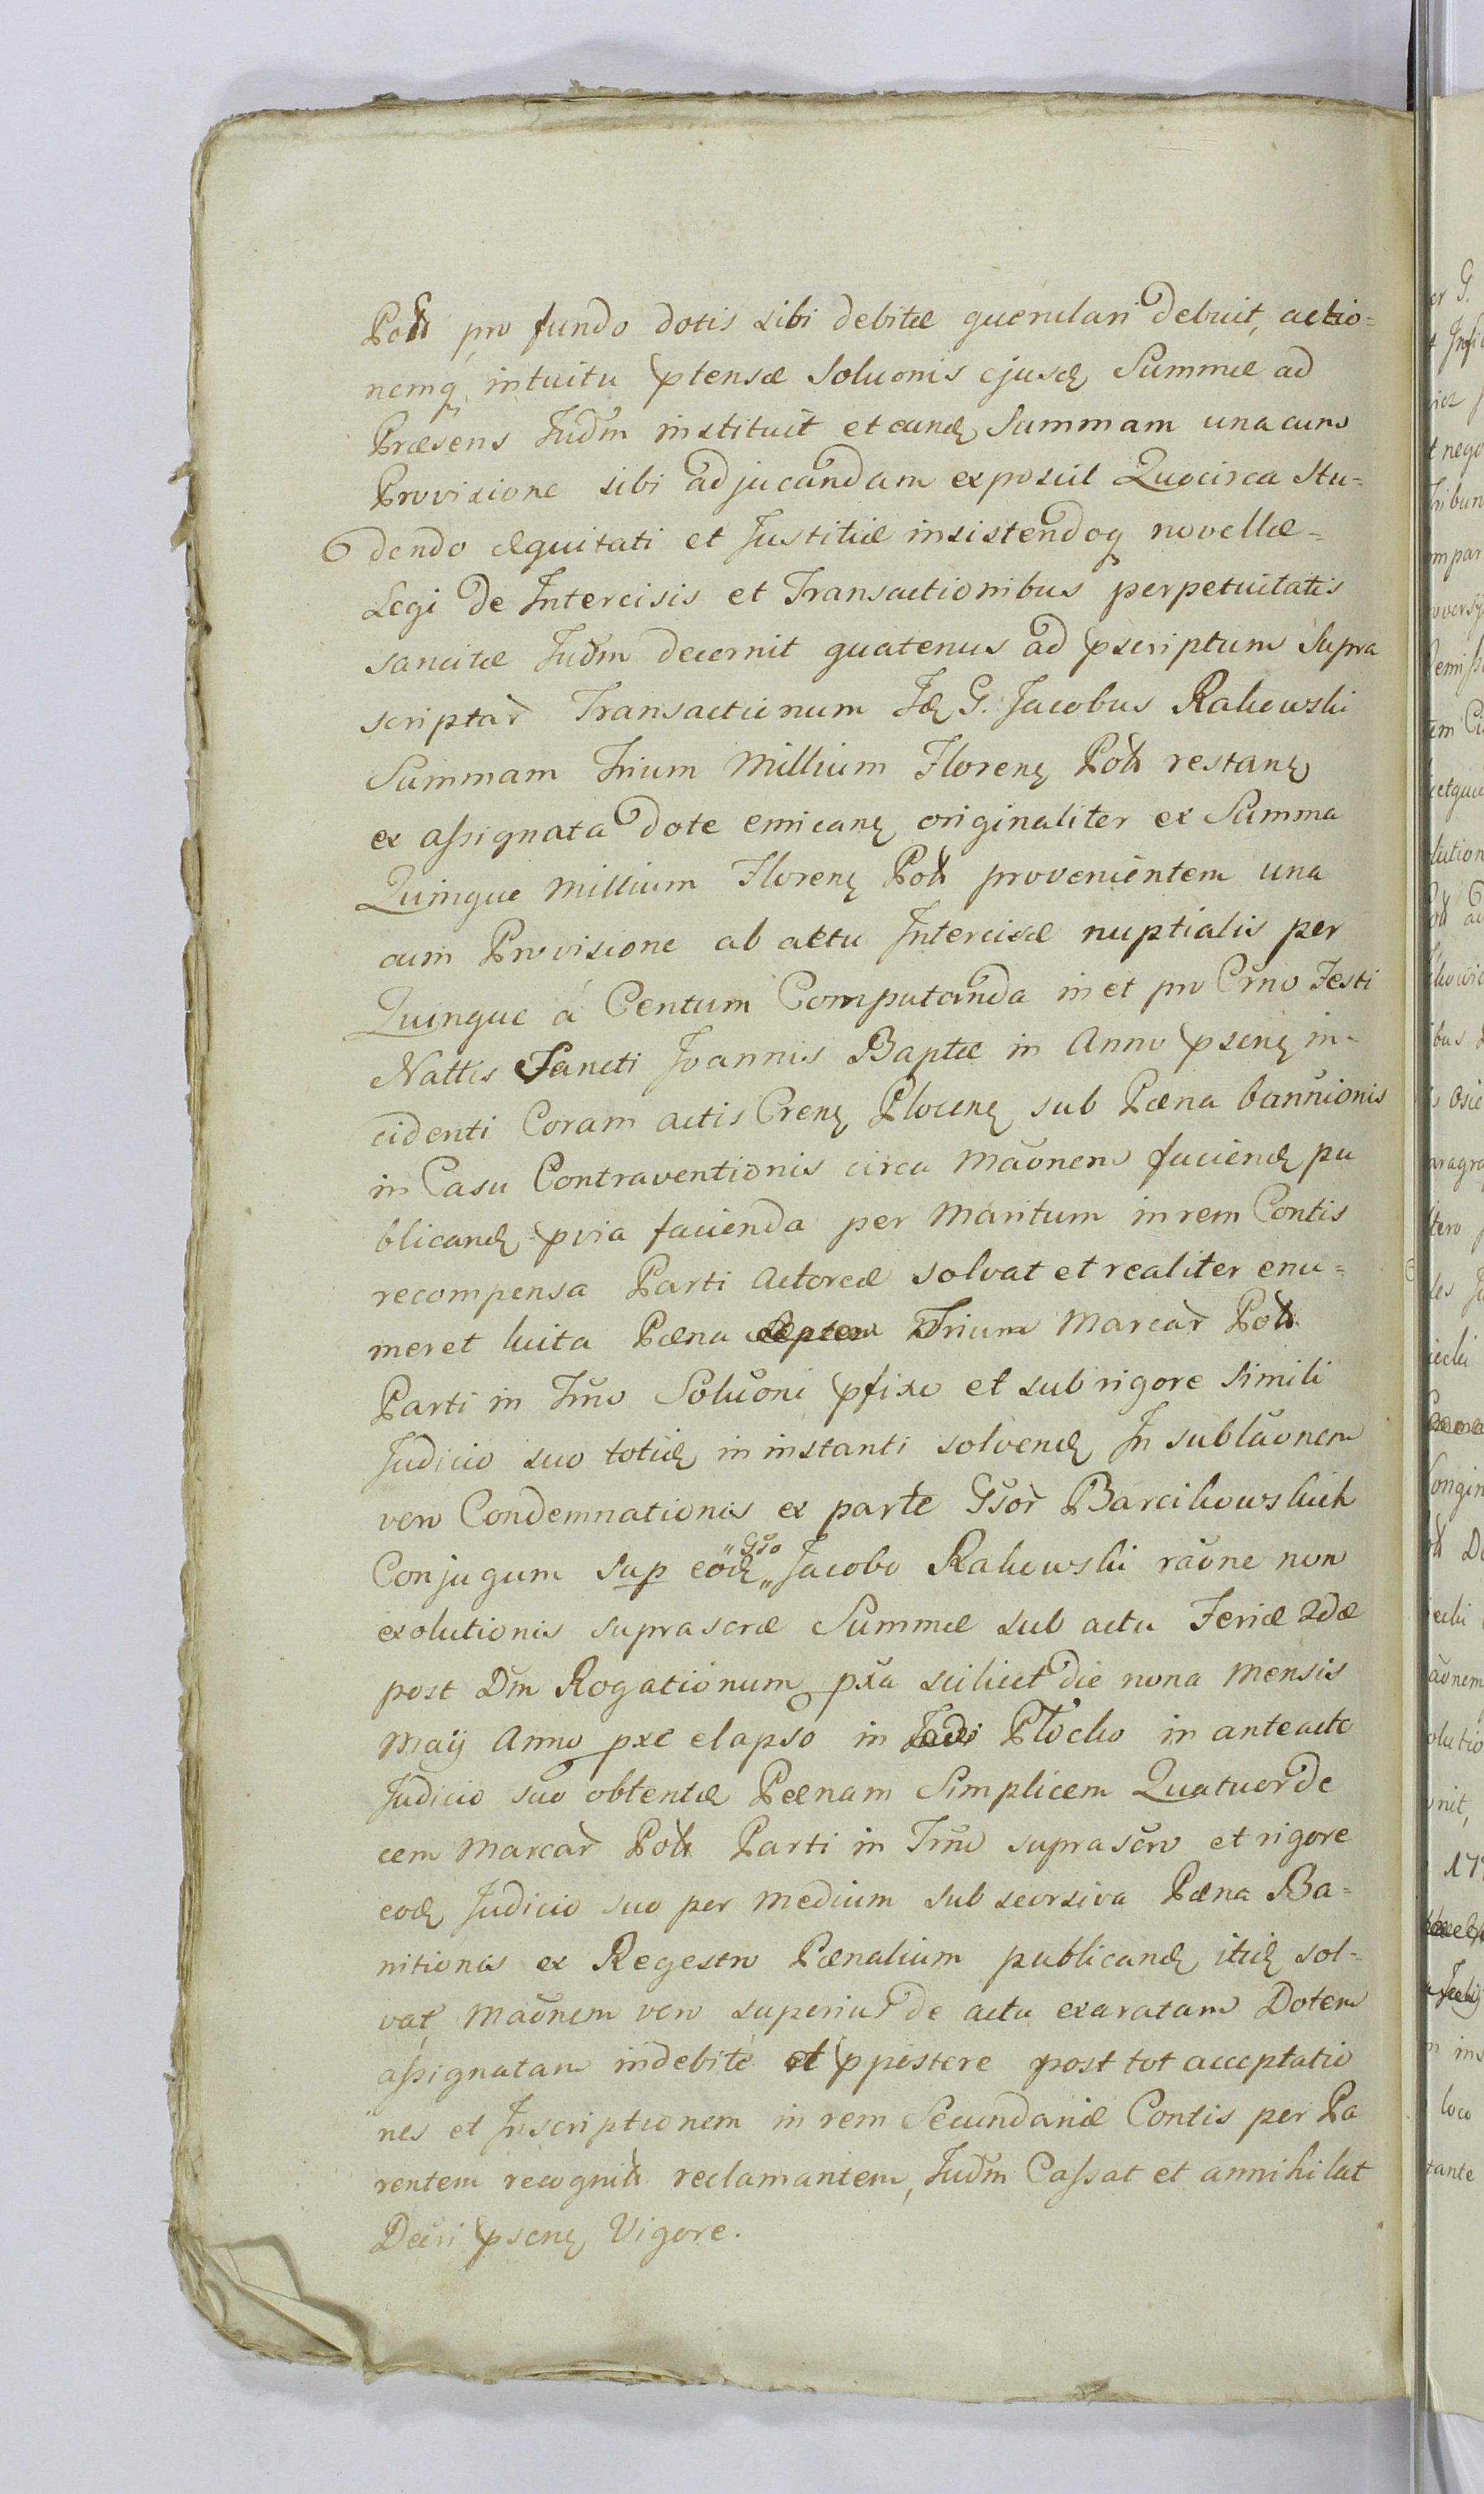 Poll pro fundo dotis sibi debitæ querulari debuit, actio=
nemq intuitu ptensæ Soluonis ejusd Summæ ad
Præsens Judm instituit et eand Summam una cum
Provisione sibi adjucandam exposcit Quocirca Stu=
dendo Æquitati et Justitiæ insistendoq novellæ=
Legi de Intercisis et Transactionibus perpetuitatis
sancitæ Judm decernit quatenus ad pscriptum Supra
scriptar Transactionum Id G. Jacobus Rakowski
Summam Trium Millium Floren Poll restan
ex assignata dote emican originaliter ex Summa
Quinque Millium Floren Poll provenientem una
cum Provisione ab actu Intercisæ nuptialis per
Quinque á Centum Computanda in et pro Crno Festi
Nattis Sancti Joannis Baptæ in Anno psen in-
cidenti Coram actis Cren Plocen sub Pæna bannionis
in Casu Contraventionis circa Maonem faciend pu
blicand pvia facienda per Maritum in rem Contis
recompensa Parti Actoreæ solvat et realiter enu=
meret luita Pæna Trium Marcar Poll
Parti in Tmo Soluoni pfixo et sub rigore simili
Judicio suo totid in instanti solvend In sublaonem
vero Condemnationis ex parte Gsor Barcikowskich
Conjugum sup eod "Gso" Jacobo Rakowski raone non
exolutionis suprascræ Summæ sub actu Feriæ 2dæ
post Dm Rogationum pxa scilicet die nona Mensis
Maij Anno pxe elapso in Plocko in anteacto
Judicio suo obtentæ Pænam Simplicem Quatuorde
cem Marcar Poll Parti in Tmo suprascro et rigore
eod Judicio suo per medium sub seorsiva Pæna Ba=
nitionis ex Regestro Pænalium publicand itid sol-
vat, Maonem vero superius de actu exaratam Dotem
assignatam indebité et ppostere post tot acceptatio
nes et Inscriptionem in rem Secundariæ Contis per Pa
rentem recognit reclamantem, Judm Cassat et annihilat
Decri psen Vigore.